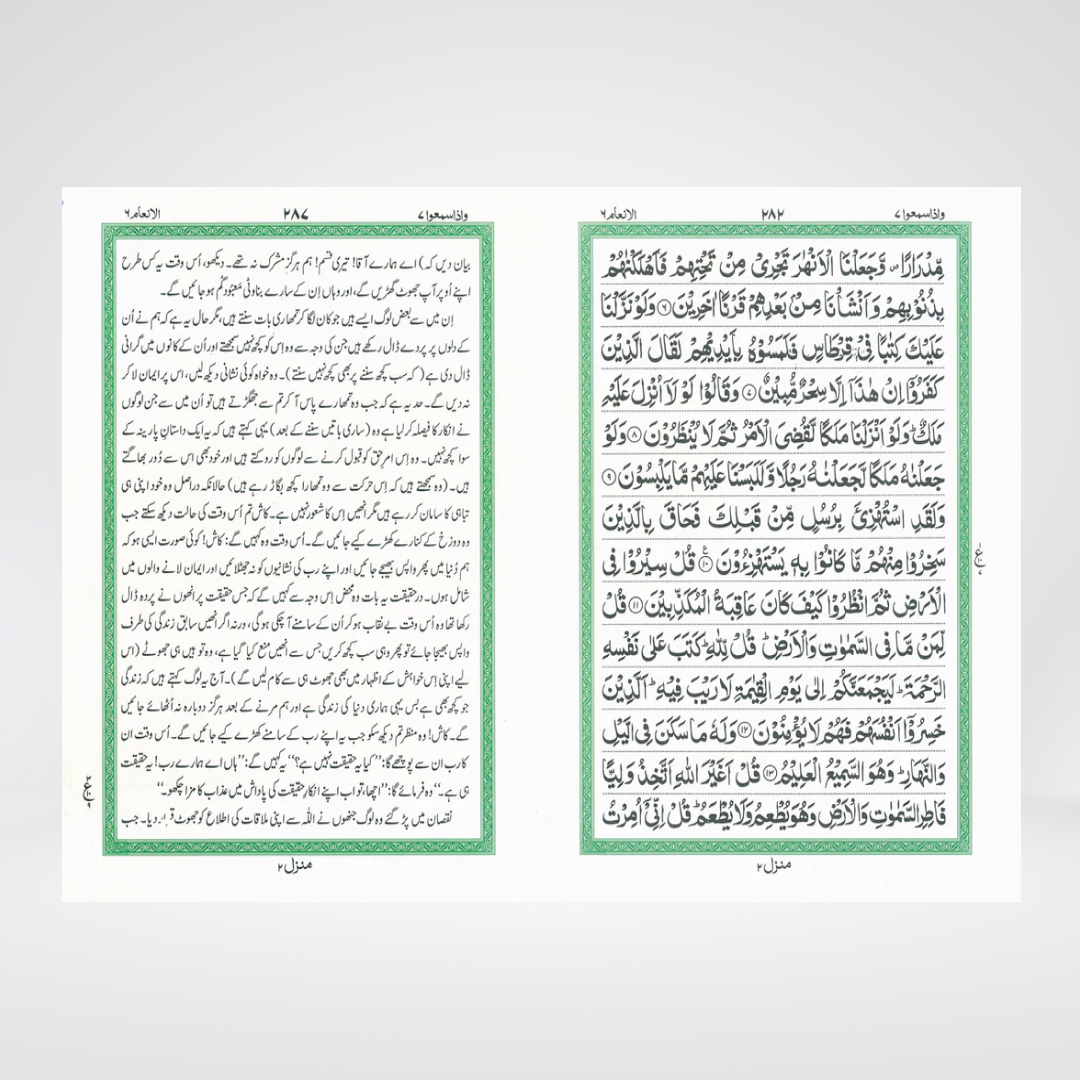 واذاسمعوا ۷
۲۸۲
الانعام ۶
مِّدْرَارًا ۪ وَّجَعَلْنَا الْاَنْهٰرَ تَجْرِیْ مِنْ تَحْتِهِمْ فَاَهْلَكْنٰهُمْ
بِذُنُوْبِهِمْ وَاَنْشَاْنَا مِنْۢ بَعْدِهِمْ قَرْنًا اٰخَرِیْنَ ۝۶ وَلَوْ نَزَّلْنَا
عَلَیْكَ كِتٰبًا فِیْ قِرْطَاسٍ فَلَمَسُوْهُ بِاَیْدِیْهِمْ لَقَالَ الَّذِیْنَ
كَفَرُوْۤا اِنْ هٰذَاۤ اِلَّا سِحْرٌ مُّبِیْنٌ ۝۷ وَقَالُوْا لَوْ لَاۤ اُنْزِلَ عَلَیْهِ
مَلَكٌ ؕ وَلَوْ اَنْزَلْنَا مَلَكًا لَّقُضِیَ الْاَمْرُ ثُمَّ لَا یُنْظَرُوْنَ ۝۸ وَلَوْ
جَعَلْنٰهُ مَلَكًا لَّجَعَلْنٰهُ رَجُلًا وَّلَلَبَسْنَا عَلَیْهِمْ مَّا یَلْبِسُوْنَ ۝۹
وَلَقَدِ اسْتُهْزِئَ بِرُسُلٍ مِّنْ قَبْلِكَ فَحَاقَ بِالَّذِیْنَ
سَخِرُوْا مِنْهُمْ مَّا كَانُوْا بِهٖ یَسْتَهْزِءُوْنَ ۝۱۰ قُلْ سِیْرُوْا فِی
الْاَرْضِ ثُمَّ انْظُرُوْا كَیْفَ كَانَ عَاقِبَةُ الْمُكَذِّبِیْنَ ۝۱۱ قُلْ
لِّمَنْ مَّا فِی السَّمٰوٰتِ وَالْاَرْضِ ؕ قُلْ لِّلّٰهِ ؕ كَتَبَ عَلٰی نَفْسِهِ
الرَّحْمَةَ ؕ لَیَجْمَعَنَّكُمْ اِلٰی یَوْمِ الْقِیٰمَةِ لَا رَیْبَ فِیْهِ ؕ اَلَّذِیْنَ
خَسِرُوْۤا اَنْفُسَهُمْ فَهُمْ لَا یُؤْمِنُوْنَ ۝۱۲ وَلَهٗ مَا سَكَنَ فِی الَّیْلِ
وَالنَّهَارِ ؕ وَهُوَ السَّمِیْعُ الْعَلِیْمُ ۝۱۳ قُلْ اَغَیْرَ اللّٰهِ اَتَّخِذُ وَلِیًّا
فَاطِرِ السَّمٰوٰتِ وَالْاَرْضِ وَهُوَ یُطْعِمُ وَلَا یُطْعَمُ ؕ قُلْ اِنِّیْۤ اُمِرْتُ
منزل ۲
واذاسمعوا ۷
۲۸۷
الانعام ۶
بیان دیں کہ) اے ہمارے آقا! تیری قسم! ہم ہرگز مشرک نہ تھے۔ دیکھو، اُس وقت یہ کس طرح
اپنے اُوپر آپ جھوٹ گھڑیں گے، اور وہاں اِن کے سارے بناوٹی معبُود گم ہو جائیں گے۔
اِن میں سے بعض لوگ ایسے ہیں جو کان لگا کر تمھاری بات سنتے ہیں، مگر حال یہ ہے کہ ہم نے اُن
کے دلوں پر پردے ڈال رکھے ہیں جن کی وجہ سے وہ اِس کو کچھ نہیں سمجھتے اور اُن کے کانوں میں گرانی
ڈال دی ہے (کہ سب کچھ سننے پر بھی کچھ نہیں سنتے)۔ وہ خواہ کوئی نشانی دیکھ لیں، اس پر ایمان لا کر
نہ دیں گے۔ حد یہ ہے کہ جب وہ تمھارے پاس آ کر تم سے جھگڑتے ہیں تو اُن میں سے جن لوگوں
نے انکار کا فیصلہ کر لیا ہے وہ (ساری باتیں سننے کے بعد) یہی کہتے ہیں کہ یہ ایک داستانِ پارینہ کے
سوا کچھ نہیں۔ وہ اِس امرِ حق کو قبول کرنے سے لوگوں کو روکتے ہیں اور خود بھی اس سے دُور بھاگتے
ہیں۔ (وہ سمجھتے ہیں کہ اِس حرکت سے وہ تمھارا کچھ بگاڑ رہے ہیں) حالانکہ دراصل وہ خود اپنی ہی
تباہی کا سامان کر رہے ہیں مگر انھیں اِس کا شعور نہیں ہے۔ کاش تم اُس وقت کی حالت دیکھ سکتے جب
وہ دوزخ کے کنارے کھڑے کیے جائیں گے۔ اُس وقت وہ کہیں گے: کاش! کوئی صورت ایسی ہو کہ
ہم دُنیا میں پھر واپس بھیجے جائیں اور اپنے رب کی نشانیوں کو نہ جھٹلائیں اور ایمان لانے والوں میں
شامل ہوں۔ درحقیقت یہ بات وہ محض اِس وجہ سے کہیں گے کہ جس حقیقت پر انھوں نے پردہ ڈال
رکھا تھا وہ اُس وقت بے نقاب ہو کر اُن کے سامنے آ چکی ہوگی، ورنہ اگر انھیں سابق زندگی کی طرف
واپس بھیجا جائے تو پھر وہی سب کچھ کریں جس سے انھیں منع کیا گیا ہے، وہ تو ہیں ہی جھوٹے (اس
لیے اپنی اِس خواہش کے اظہار میں بھی جھوٹ ہی سے کام لیں گے)۔ آج یہ لوگ کہتے ہیں کہ زندگی
جو کچھ بھی ہے بس یہی ہماری دنیا کی زندگی ہے اور ہم مرنے کے بعد ہرگز دوبارہ نہ اُٹھائے جائیں
گے۔ کاش! وہ منظر تم دیکھ سکو جب یہ اپنے رب کے سامنے کھڑے کیے جائیں گے۔ اُس وقت ان
کا رب ان سے پوچھے گا: ’’کیا یہ حقیقت نہیں ہے؟‘‘ یہ کہیں گے: ’’ہاں اے ہمارے رب! یہ حقیقت
ہی ہے۔‘‘ وہ فرمائے گا: ’’اچھا، تو اب اپنے انکارِ حقیقت کی پاداش میں عذاب کا مزا چکھو۔‘‘
نقصان میں پڑ گئے وہ لوگ جنھوں نے اللہ سے اپنی ملاقات کی اطلاع کو جھوٹ قرار دیا۔ جب
منزل ۲